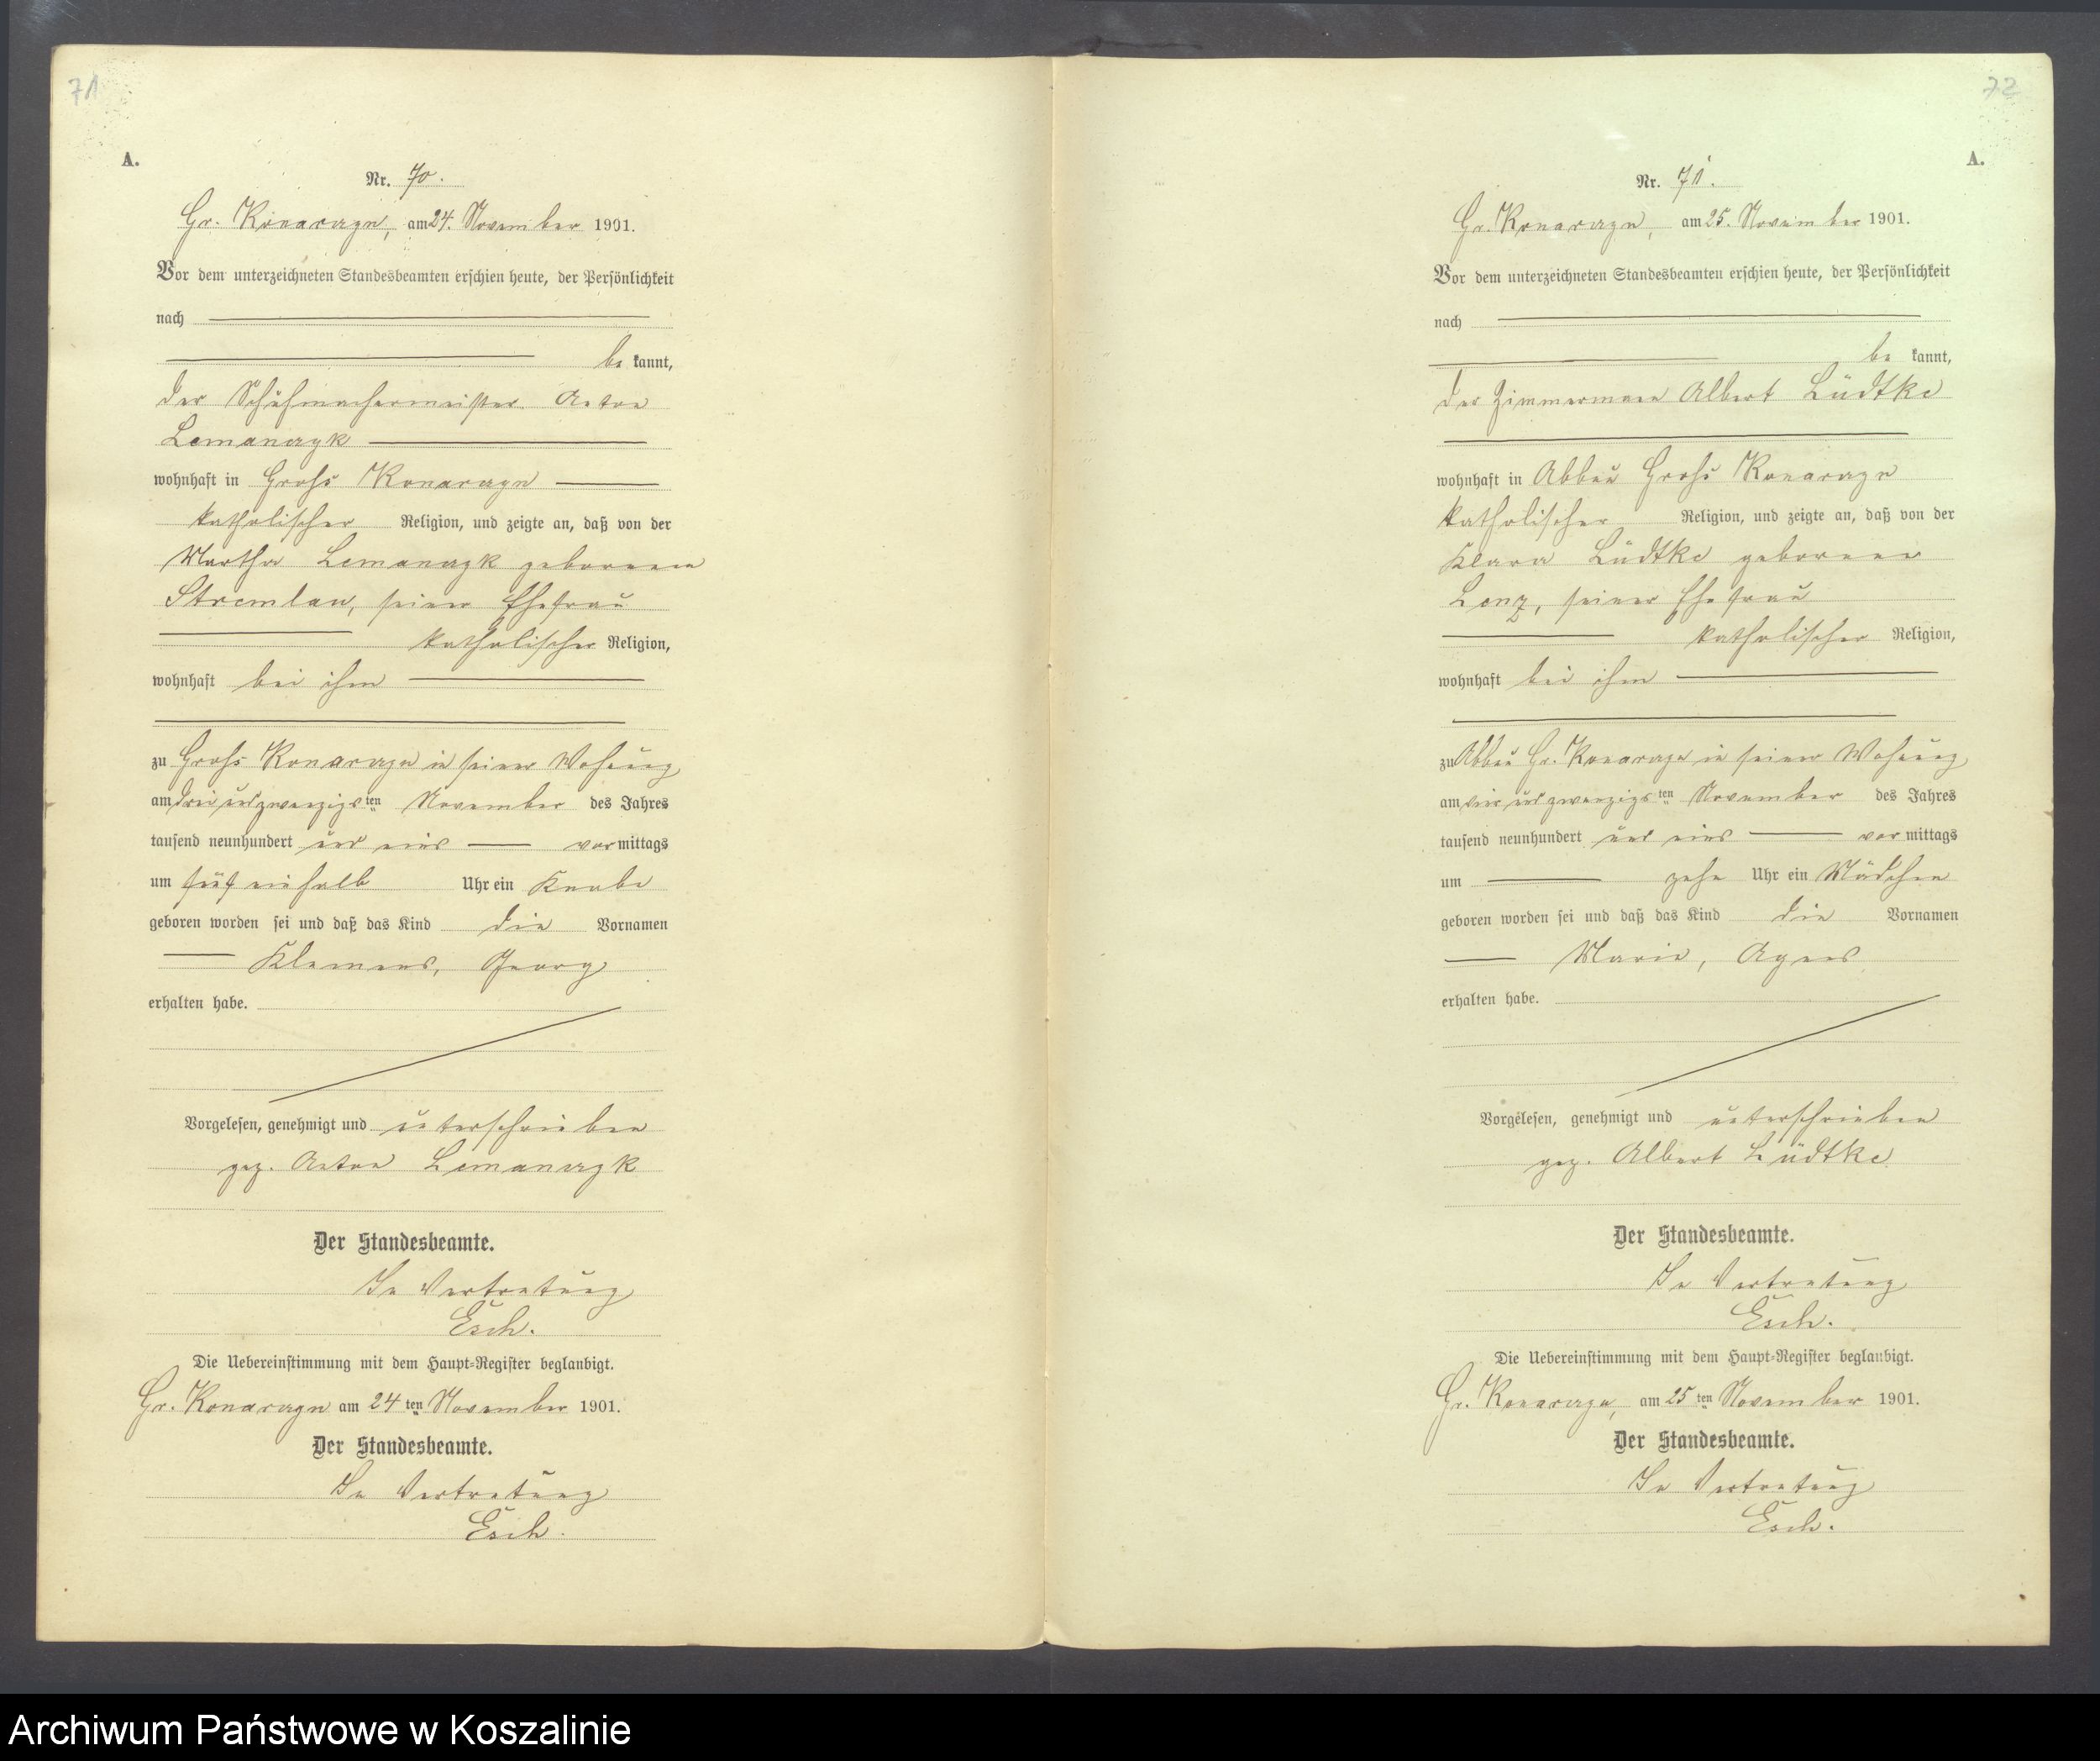 71
A.
Nr. 70.
Gr. Konarczyn, am 24. November 1901.
Vor dem unterzeichneten Standesbeamten erschien heute, der Persönlichkeit
nach
be kannt,
der Schuhmachermeister Anton
Lemanczyk
wohnhaft in Groß Konarczyn
katholischer Religion, und zeigte an, daß von der
Martha Lemanczyk geborenen
Stremlau, seiner Ehefrau
katholischer Religion,
wohnhaft bei ihm
zu Groß Konarczyn in seiner Wohnung
am drei und zwanzigsten November des Jahres
tausend neunhundert und eins vormittags
um fünf einhalb Uhr ein Knabe
geboren worden sei und daß das Kind die Vornamen
Klemens, Georg
erhalten habe.
Vorgelesen, genehmigt und unterschrieben
gez. Anton Lemanczyk
Der Standesbeamte.
In Vertretung
Esch.
Die Uebereinstimmung mit dem Haupt-Register beglaubigt.
Gr. Konarczyn am 24ten November 1901.
Der Standesbeamte.
In Vertretung
Esch.
72
A.
Nr. 71.
Gr. Konarczyn, am 25. November 1901.
Vor dem unterzeichneten Standesbeamten erschien heute, der Persönlichkeit
nach
be kannt,
der Zimmermann Albert Lüdtke
wohnhaft in Abbau Groß Konarczyn
katholischer Religion, und zeigte an, daß von der
Klara Lüdtke geborenen
Lenz, seiner Ehefrau
katholischer Religion,
wohnhaft bei ihm
zu Abbau Gr. Konarczyn in seiner Wohnung
am vier und zwanzigsten November des Jahres
tausend neunhundert und eins vormittags
um zehn Uhr ein Mädchen
geboren worden sei und daß das Kind die Vornamen
Marie, Agnes
erhalten habe.
Vorgelesen, genehmigt und unterschrieben
gez. Albert Lüdtke
Der Standesbeamte.
In Vertretung
Esch.
Die Uebereinstimmung mit dem Haupt-Register beglaubigt.
Gr. Konarczyn, am 25ten November 1901.
Der Standesbeamte.
In Vertretung
Esch.
Archiwum Państwowe w Koszalinie